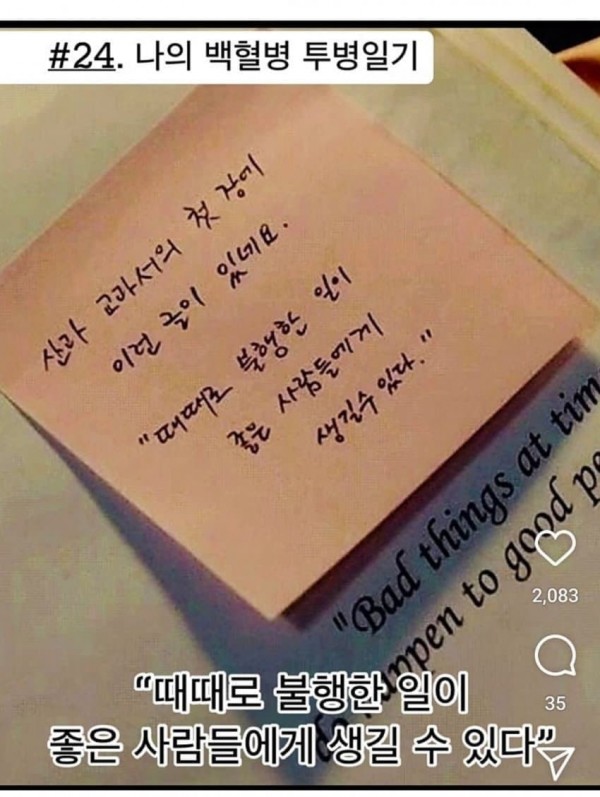 #24. 나의 백혈병 투병일기
산과 교과서의 첫 장에
이런 글이 있네요.
"때때로 불행한 일이
좋은 사람들에게
생길 수 있다."
"Bad things at tim
do happen to good pe
2,083
35
“때때로 불행한 일이
좋은 사람들에게 생길 수 있다”